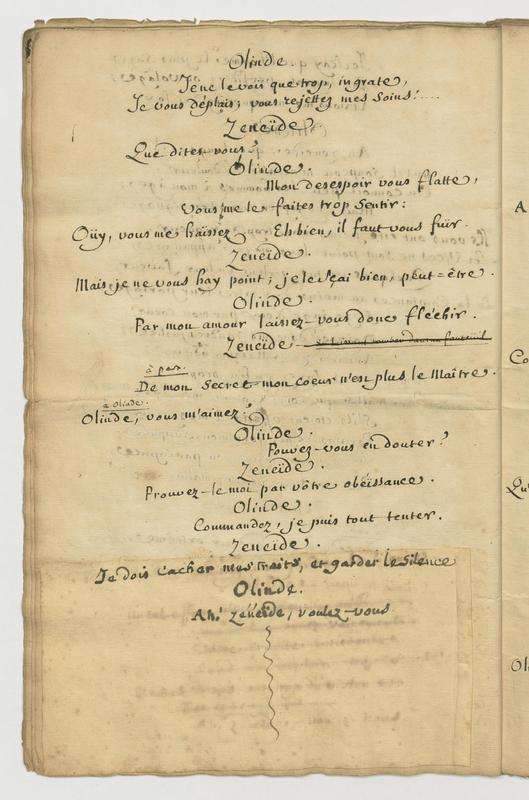 Olinde.
Je ne le vois que trop, ingrate,
Je vous déplais; vous rejettez mes soins!....
Zeneïde.
Que dites-vous?
Olinde.
Mon desespoir vous flatte,
Vous me le faites trop sentir:
Oüy, vous me haissez. Eh bien, il faut vous fuir.
Zeneïde.
Mais je ne vous hay point; je le sçai bien, peut=être.
Olinde.
Par mon amour laissez-vous donc fléchir.
Zeneïde.
à par.
De mon Secret mon coeur n'en plus le Maître.
à Olinde.
Olinde, vous m'aimez?
Olinde.
Pouvez-vous en douter?
Zeneïde.
Prouvez-le moi par vôtre obéissance.
Olinde.
Commandez, je puis tout tenter.
Zeneïde.
Je dois cacher mes traits, et garder le silence
Olinde.
Ah! Zeneïde, voulez-vous
A
Co
Qu
Ol